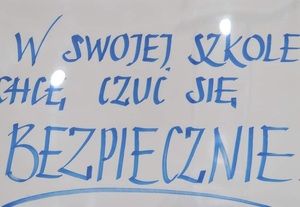 W SWOJEJ SZKOLE
CHCĘ CZUĆ SIĘ
BEZPIECZNIE.